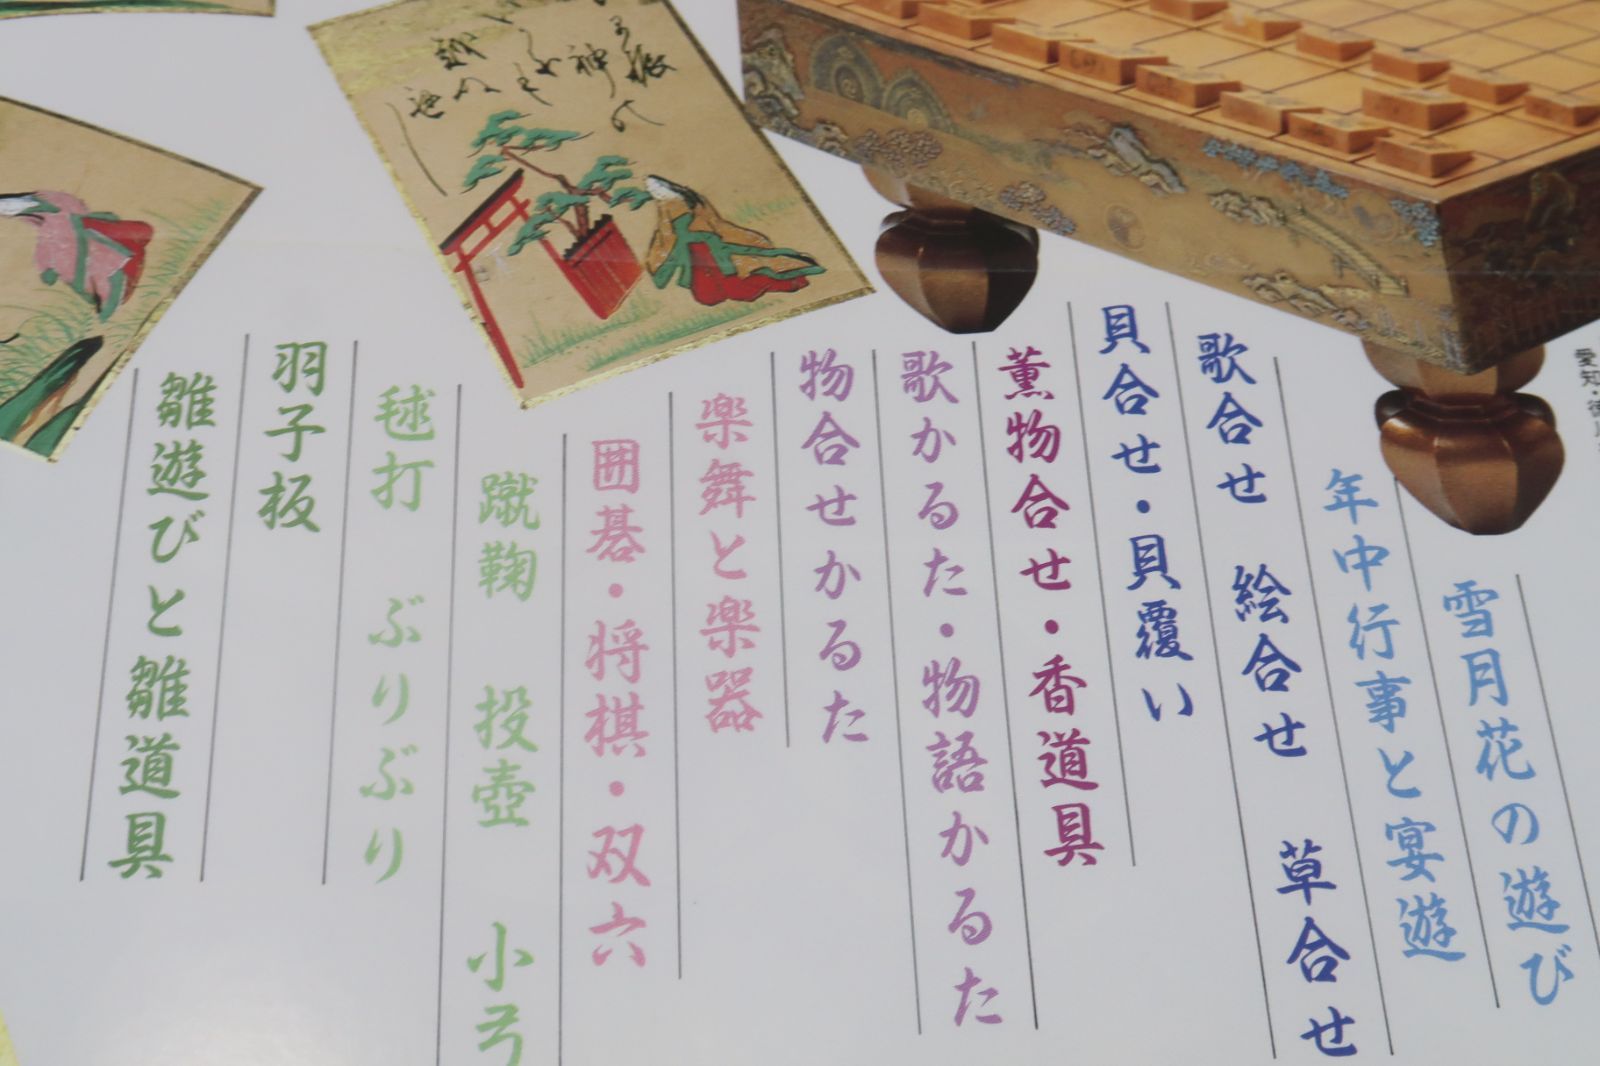 雪月花の遊び
年中行事と宴遊
歌合せ　絵合せ　草合せ
貝合せ・貝覆い
薫物合せ・香道具
歌かるた・物語かるた
物合せかるた
楽舞と楽器
囲碁・将棋・双六
蹴鞠　投壺　小弓
毬打　ぶりぶり
羽子板
雛遊びと雛道具
愛知・徳川